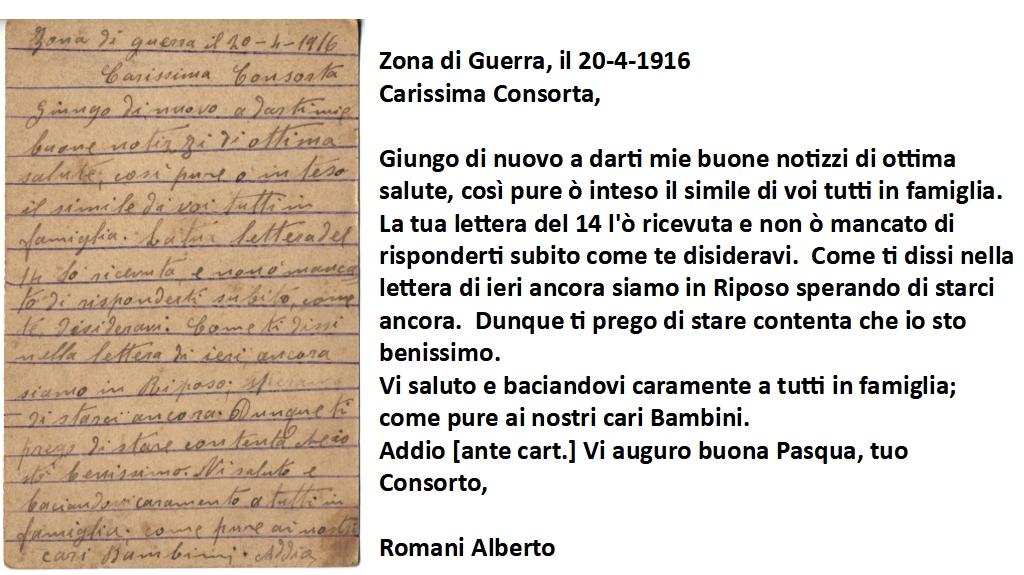 Zona di guerra il 20-4-1916
Carissima Consorta
Giungo di nuovo a darti mie
buone notizzi di ottima
salute, così pure o in teso
il simile di voi tutti in
famiglia. La tua lettera del
14 lò ricevuta e non ò manca
to di risponderti subito, come
te desideravi. Come ti dissi
nella lettera di ieri ancora
siamo in Riposo; sperando
di starci ancora. Dunque ti
prego di stare contenta che io
stò benissimo. Vi saluto e
baciandovi caramento a tutti in
famiglia; come pure ai nostri
cari Bambini. Addio
Zona di Guerra, il 20-4-1916
Carissima Consorta,
Giungo di nuovo a darti mie buone notizzi di ottima
salute, così pure ò inteso il simile di voi tutti in famiglia.
La tua lettera del 14 l'ò ricevuta e non ò mancato di
risponderti subito come te disideravi.  Come ti dissi nella
lettera di ieri ancora siamo in Riposo sperando di starci
ancora.  Dunque ti prego di stare contenta che io sto
benissimo.
Vi saluto e baciandovi caramente a tutti in famiglia;
come pure ai nostri cari Bambini.
Addio [ante cart.] Vi auguro buona Pasqua, tuo
Consorto,
Romani Alberto